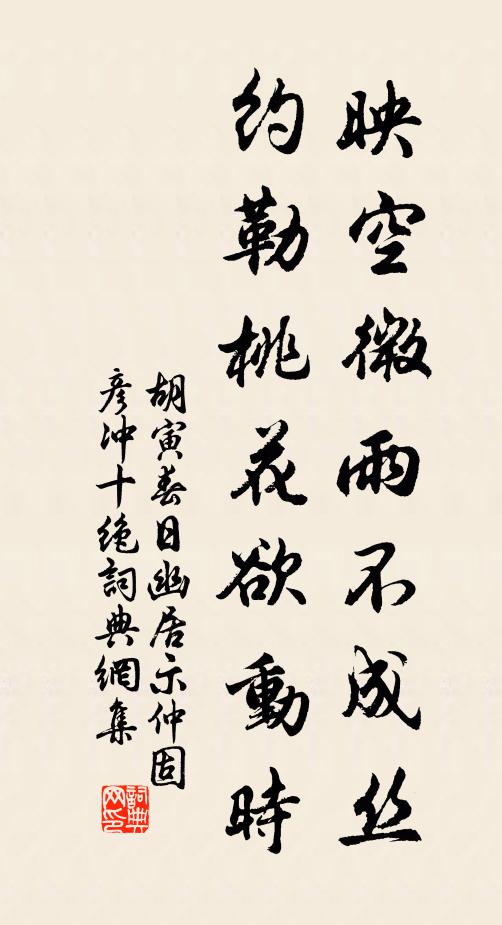 映空微雨不成丝
約勒桃花欲動時
胡寅春日幽居示仲固
彦冲十絶詞典網集
詞典网印